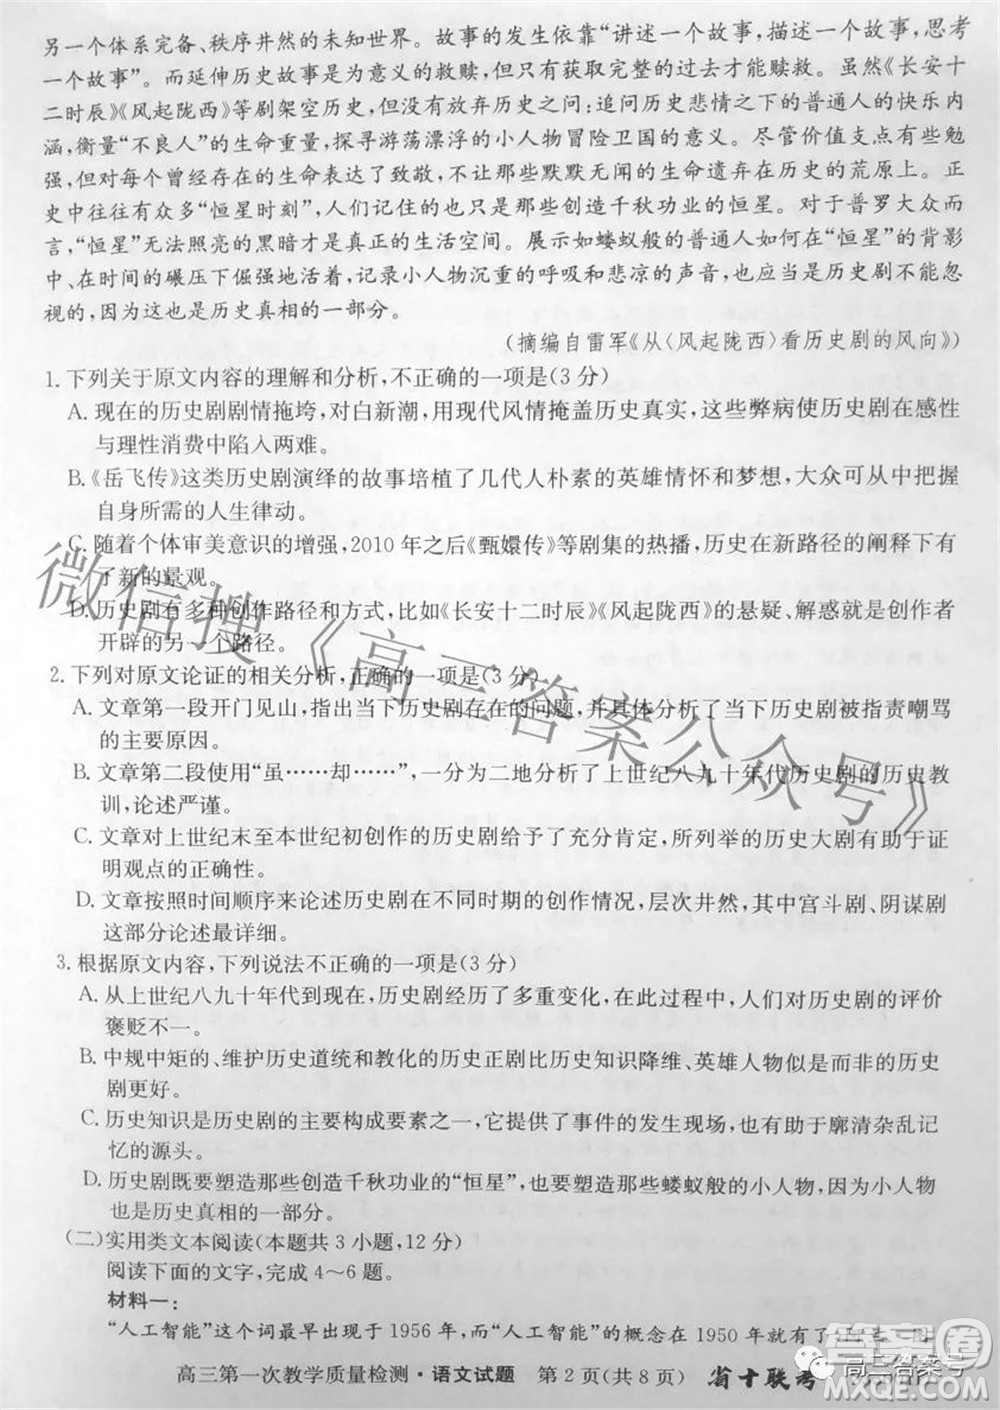 另一个体系完备、秩序井然的未知世界。故事的发生依靠“讲述一个故事，描述一个故事，思考
一个故事”。而延伸历史故事是为意义的救赎，但只有获取完整的过去才能赎救。虽然《长安十
二时辰》《风起陇西》等剧架空历史，但没有放弃历史之问：追问历史悲情之下的普通人的快乐内
涵，衡量“不良人”的生命重量，探寻游荡漂浮的小人物冒险卫国的意义。尽管价值支点有些勉
强，但对每个曾经存在的生命表达了致敬，不让那些默默无闻的生命遗存在历史的荒原上。历
史中往往有众多“恒星时刻”，人们记住的也是那些创造千秋功业的恒星。对于普罗大众而
言，“恒星”无法照亮的黑暗才是真正的生活空间。展示如蝼蚁般的普通人如何在“恒星”的背影
中、在时间的碾压下倔强地活着，记录小人物沉重的呼吸和悲凉的声音，也应当是历史剧不能忽
视的，因为这也是历史真相的一部分。
（摘编自雷军《从〈风起陇西〉看历史剧的风向》）
1. 下列关于原文内容的理解和分析，不正确的一项是（3 分）
A. 现在的历史剧剧情拖垮，对白新潮，用现代风情掩盖历史真实，这些弊病使历史剧在感性
与理性消费中陷入两难。
B.《岳飞传》这类历史剧演绎的故事培植了几代人朴素的英雄情怀和梦想，大众从中把握
自身所需的人生律动。
C. 随着个体审美意识的增强，2010 年之后《甄嬛传》等剧集的热播，历史在新路径的阐释下有
了新的景观。
D. 历史剧有多种创作路径和方式，比如《长安十二时辰》《风起陇西》的悬疑、解惑就是创作者
开辟的另一个路径。
2. 下列对原文论证的相关分析，正确的一项是（3 分）
A. 文章第一段开门见山，指出当下历史剧存在的问题，并具体分析了当下历史剧被指责嘲骂
的主要原因。
B. 文章第二段使用“虽……却……”，一分为二地分析了上世纪八九十年代历史剧的历史教
训，论述严谨。
C. 文章对上世纪末至本世纪初创作的历史剧给予了充分肯定，所列举的历史大剧有助于证
明观点的正确性。
D. 文章按照时间顺序来论述历史剧在不同时期的创作情况，层次井然，其中宫斗剧、阴谋剧
这部分论述最详细。
3. 根据原文内容，下列说法不正确的一项是（3 分）
A. 从上世纪八九十年代到现在，历史剧经历了多重变化，在此过程中，人们对历史剧的评价
褒贬不一。
B. 中规中矩的、维护历史道统和教化的历史正剧比历史知识降维、英雄人物似是而非的历史
剧更好。
C. 历史知识是历史剧的主要构成要素之一，它提供了事件的发生现场，有助于廓清杂乱记
忆的源头。
D. 历史剧既要塑造那些创造千秋功业的“恒星”，也要塑造那些蝼蚁般的小人物，小人物也
也是历史真相的一部分。
（二）实用类文本阅读（本题共 3 小题，12 分）
阅读下面的文字，完成 4～6 题。
材料一：
“人工智能”这个词最早出现于 1956 年，而“人工智能”的概念在 1950 年就有了
高三第一次教学质量检测·语文试题 第 2 页（共 8 页） 省十联考
微信搜《高三答案公众号》
高三答案号
答案圈